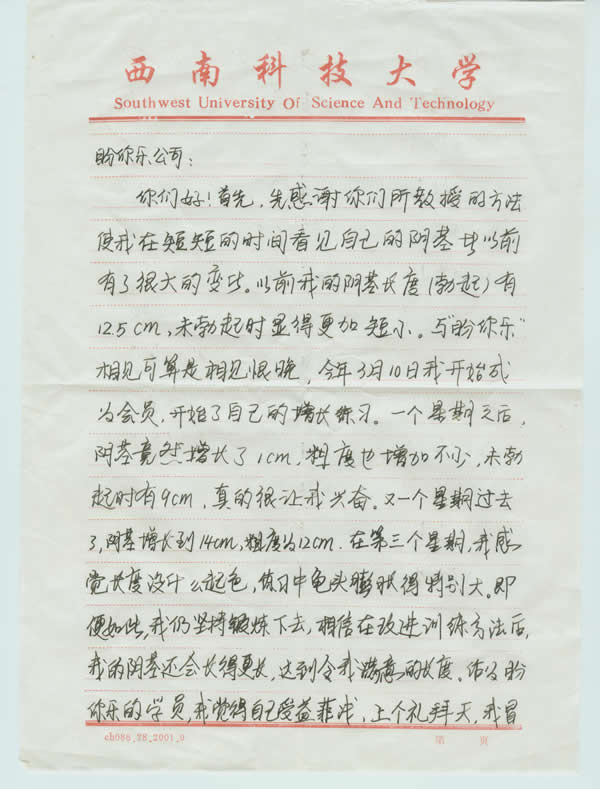 西南科技大学
Southwest University Of Science And Technology
盼你乐公司：
你们好！首先，先感谢你们所教授的方法
使我在短短的时间看见自己的阴茎比以前
有了很大的变化。以前我的阴茎长度（勃起）有
12.5cm，未勃起时显得更加短小。与“盼你乐”
相见可算是相见恨晚，今年3月10日我开始成
为会员，开始了自己的增长练习。一个星期之后，
阴茎竟然增长了1cm，粗度也增加不少，未勃
起时有9cm，真的很让我兴奋。又一个星期过去
了，阴茎增长到14cm，粗度为12cm．在第三个星期，我感
觉长度没什么起色，练习中龟头膨胀得特别大。即
便如此，我仍坚持锻炼下去，相信在改进训练方法后，
我的阴茎还会长得更长，达到令我满意的长度。作为盼
你乐的学员，我觉得自己受益菲浅，上个礼拜天，我冒
ch086.28.2001.9
第 页